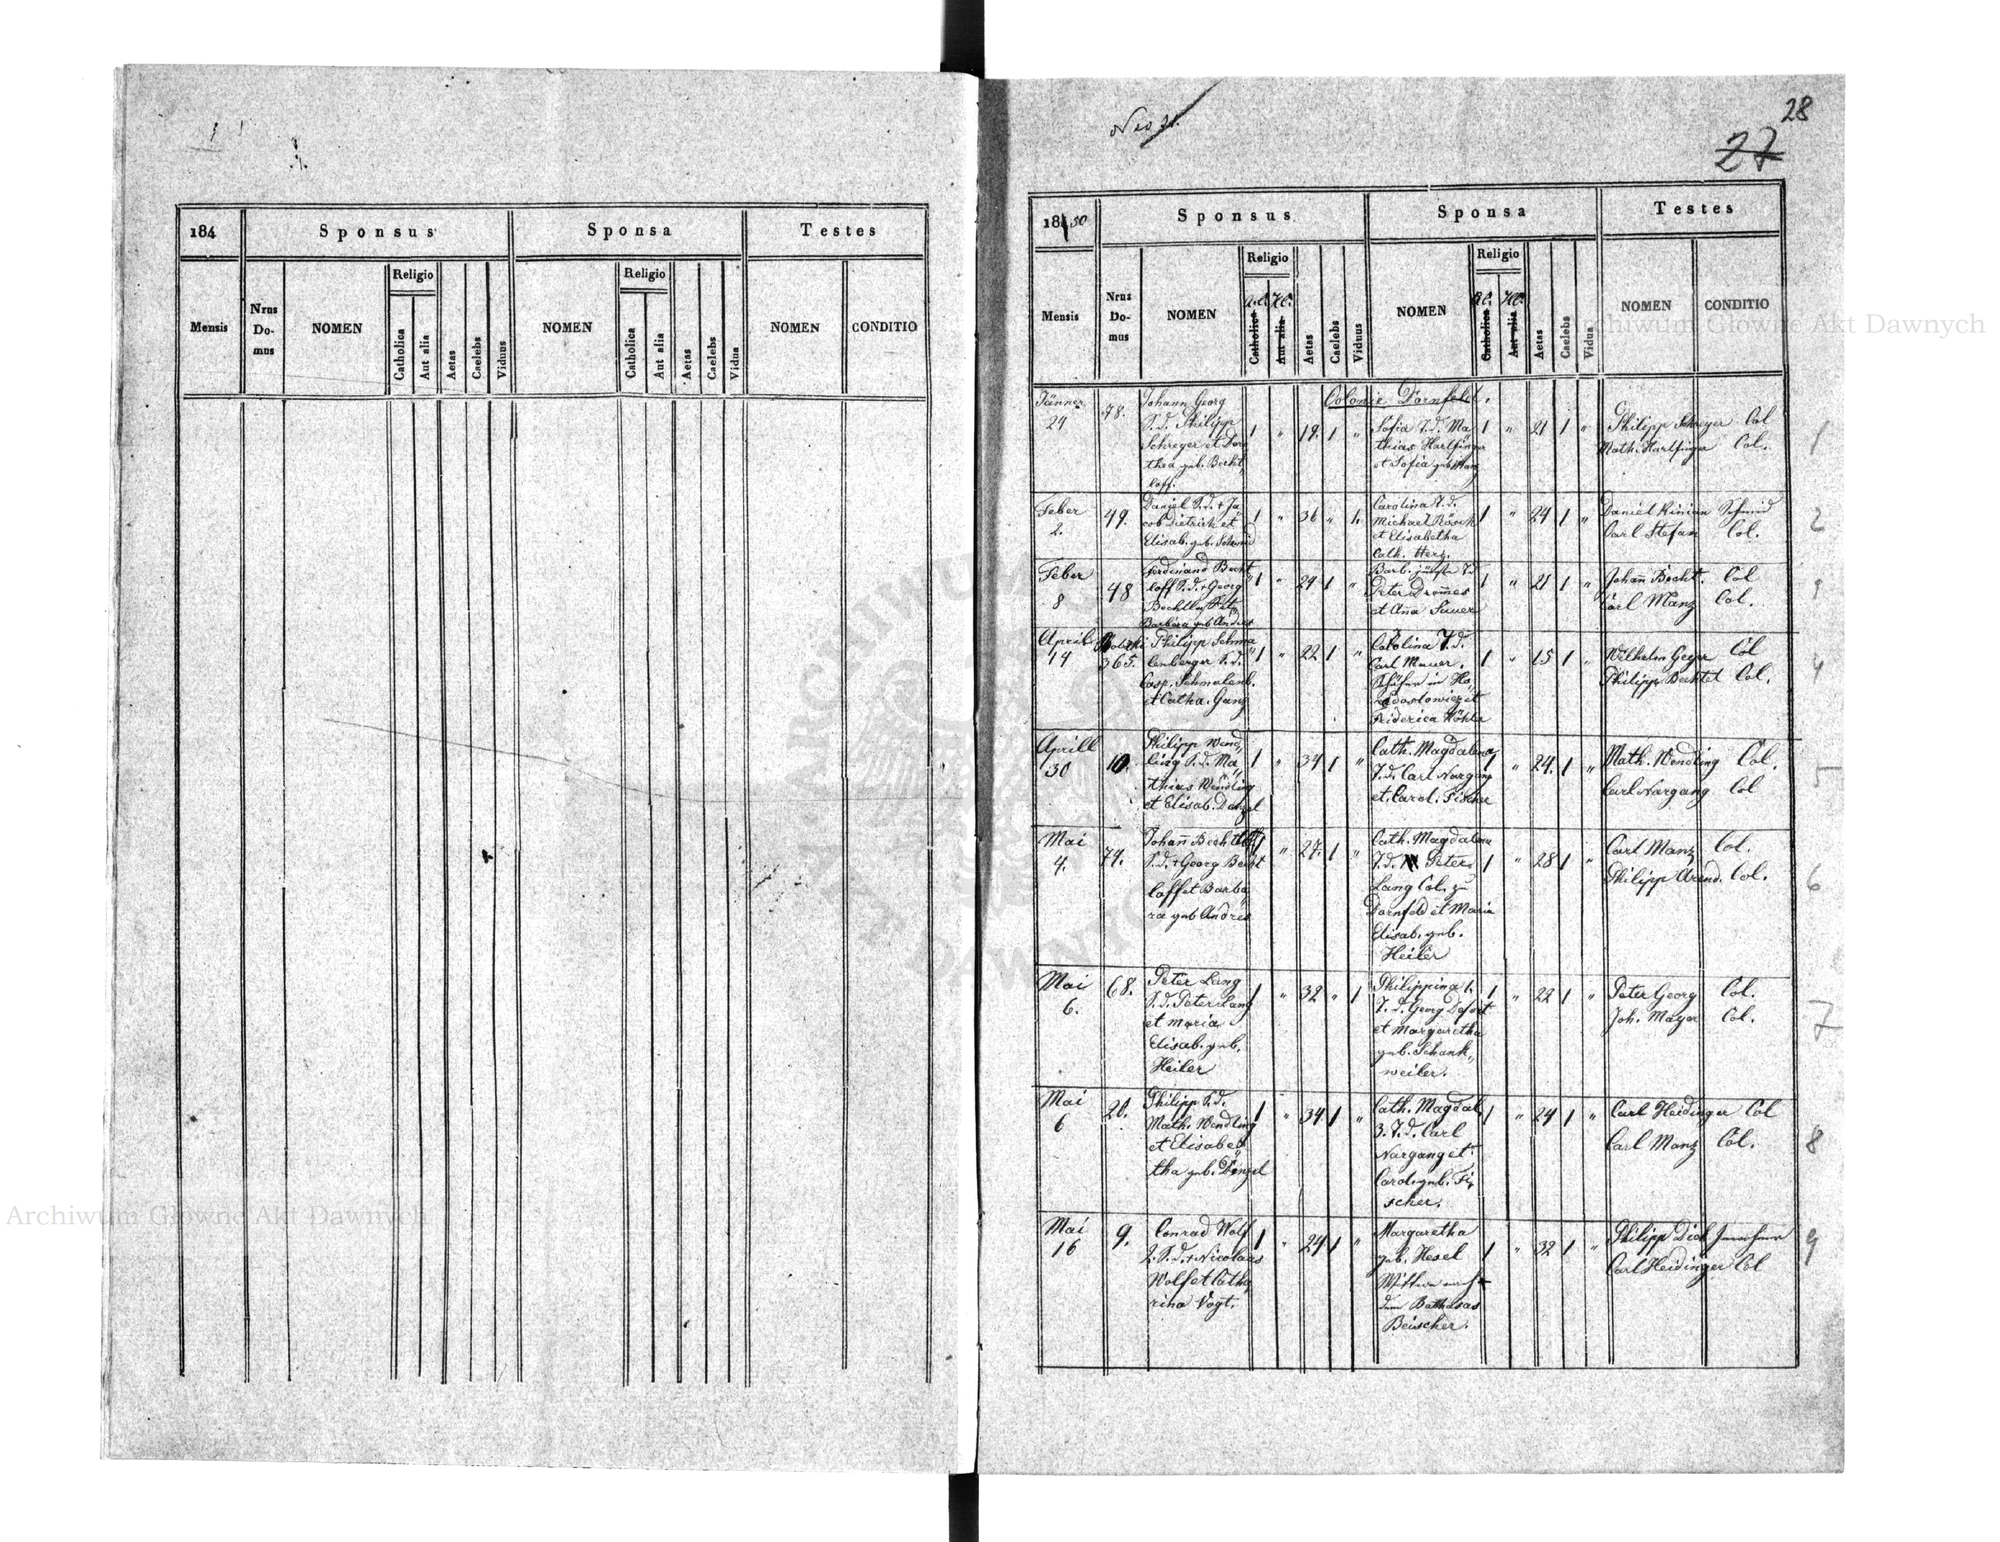 184
Sponsus
Sponsa
Testes
Mensis
Nrus Do- mus
NOMEN
Religio
Catholica
Aut alia
Aetas
Caelebs
Viduus
NOMEN
Religio
Catholica
Aut alia
Aetas
Caelebs
Vidua
NOMEN
CONDITIO
Nro 31.
28
27
18 50
Sponsus
Sponsa
Testes
Mensis
Nrus Do- mus
NOMEN
Religio
A.C. H.C.
Catholica
Aut alia
Aetas
Caelebs
Viduus
NOMEN
Religio
A.C. H.C.
Catholica
Aut alia
Aetas
Caelebs
Vidua
NOMEN
CONDITIO
Colonie Dornfeld.
Jänner
24
78.
Johann Georg
S.d. Philipp
Schreyer et Doro
thea geb. Becht
loff.
1 " 19. 1 "
Sofia T.d. Ma
thias Hartfinger
et Sofia geb. Manz
1 " 21 1 "
Philipp Schreyer Col
Math. Hartfinger Col.
1
Feber
2.
49.
Daniel S.d. + Ja
cob Dietrich et
Elisab. geb. Schmid
1 " 36 " 1.
Carolina T.d.
Michael Rösch
et Elisabetha
Cath. Herz.
1 " 24 1 "
Daniel Kinian Schmid
Carl Stefan Col.
2
Feber
8
48
Ferdinand Becht
loff S.d. + Georg
Bechtloff et
Barbara geb. Andres
1 " 24 1 "
Barb. jüngste T.d
Peter Dromes
et Anna Sauer
1 " 21 1 "
Johan Becht. Col
Carl Manz Col.
April
14
365.
Philipp Schma
lenberger S.d.
Casp. Schmalenb.
et Catha. Ganz
1 " 22 1 "
Carolina T.d.
Carl Mauer,
in Ho
rodoslowicz et
Friderica Köhler
1 " 15 1 "
Wilhelm Geyer Col
Philipp Bechtel Col.
4
Aprill
30
10.
Philipp Wend
ling S.d. Ma
thias Wendling
et Elisab. Dengel
1 " 34 1 "
Cath. Magdalena
T.d. Carl Nargang
et Carol. Fischer
1 " 24. 1 "
Math. Wendling Col.
Carl Nargang Col
5
Mai
4.
74.
Johann Bechtloff
S.d. + Georg Becht
loff et Barba
ra geb Andres
1 " 27. 1 "
Cath. Magdalena
T.d. Peter
Lang Col. zu
Dornfeld et Maria
Elisab. geb.
Heiler
1 " 28 1 "
Carl Manz Col.
Philipp Arend. Col.
6
Mai
6.
68.
Peter Lang
S.d. Peter Lang
et Maria
Elisab. geb.
Heiler
1 " 32 " 1
Philippina 1.
T.d. Georg Defort
et Margaretha
geb. Schank
weiler.
1 " 22 1 "
Peter Georg Col.
Joh. Mayer Col.
7
Mai
6
20.
Philipp S.d.
Math. Wendling
et Elisabe
tha geb. Dengel
1 " 34 1 "
Cath. Magdal
3. T.d. Carl
Nargang et
Carol. geb. Fi
scher.
1 " 24 1 "
Carl Heidinger Col
Carl Manz Col.
8
Mai
16
9.
Conrad Wolf
2. S.d. + Nicolaus
Wolf et Catha
rina Vogt.
1 " 24 1 "
Margaretha
geb. Hesel
Wittwe nach +
dem Balthasar
Beischer.
1 " 32 1 "
Philipp Diek
Carl Heidinger Col
9
ARCHIWUM
AKT DAWNYCH
Archiwum Glowne Akt Dawnych
Archiwum Glowne Akt Dawnych